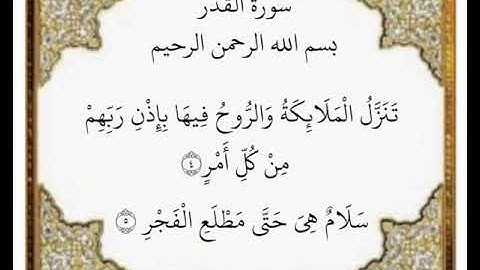 سورة القدر
بسم الله الرحمن الرحيم
تَنَزَّلُ الْمَلَائِكَةُ وَالرُّوحُ فِيهَا بِإِذْنِ رَبِّهِمْ
مِنْ كُلِّ أَمْرٍ ﴿٤﴾
سَلَامٌ هِيَ حَتَّى مَطْلَعِ الْفَجْرِ ﴿٥﴾